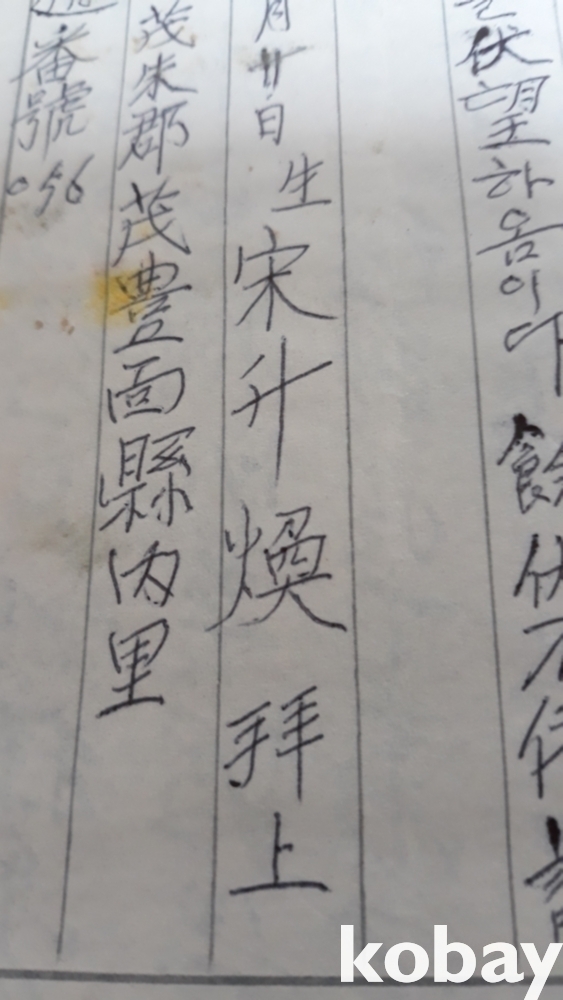 伏望하옴이다 餘伏不
月廿日 生 宋升煥 拜上
茂朱郡茂豊面縣內里
番號 056
kobay